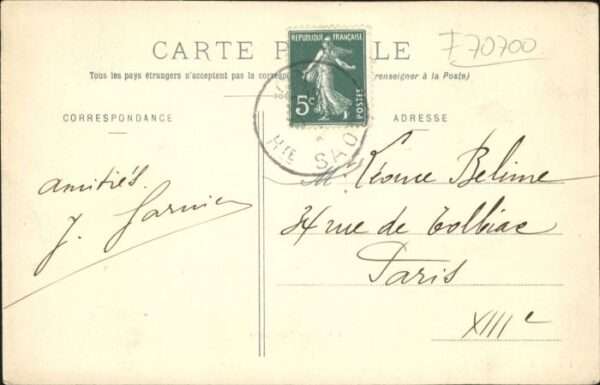 F70700
CARTE P LE
Tous les pays étrangers n'acceptent pas la corresp (Se renseigner à la Poste)
REPUBLIQUE FRANÇAISE
5c
POSTES
HTE SAO
CORRESPONDANCE
ADRESSE
amitiés.
J. Garnier
Mr Léonce Belime
34 rue de Tolbiac
Paris
XIIIe